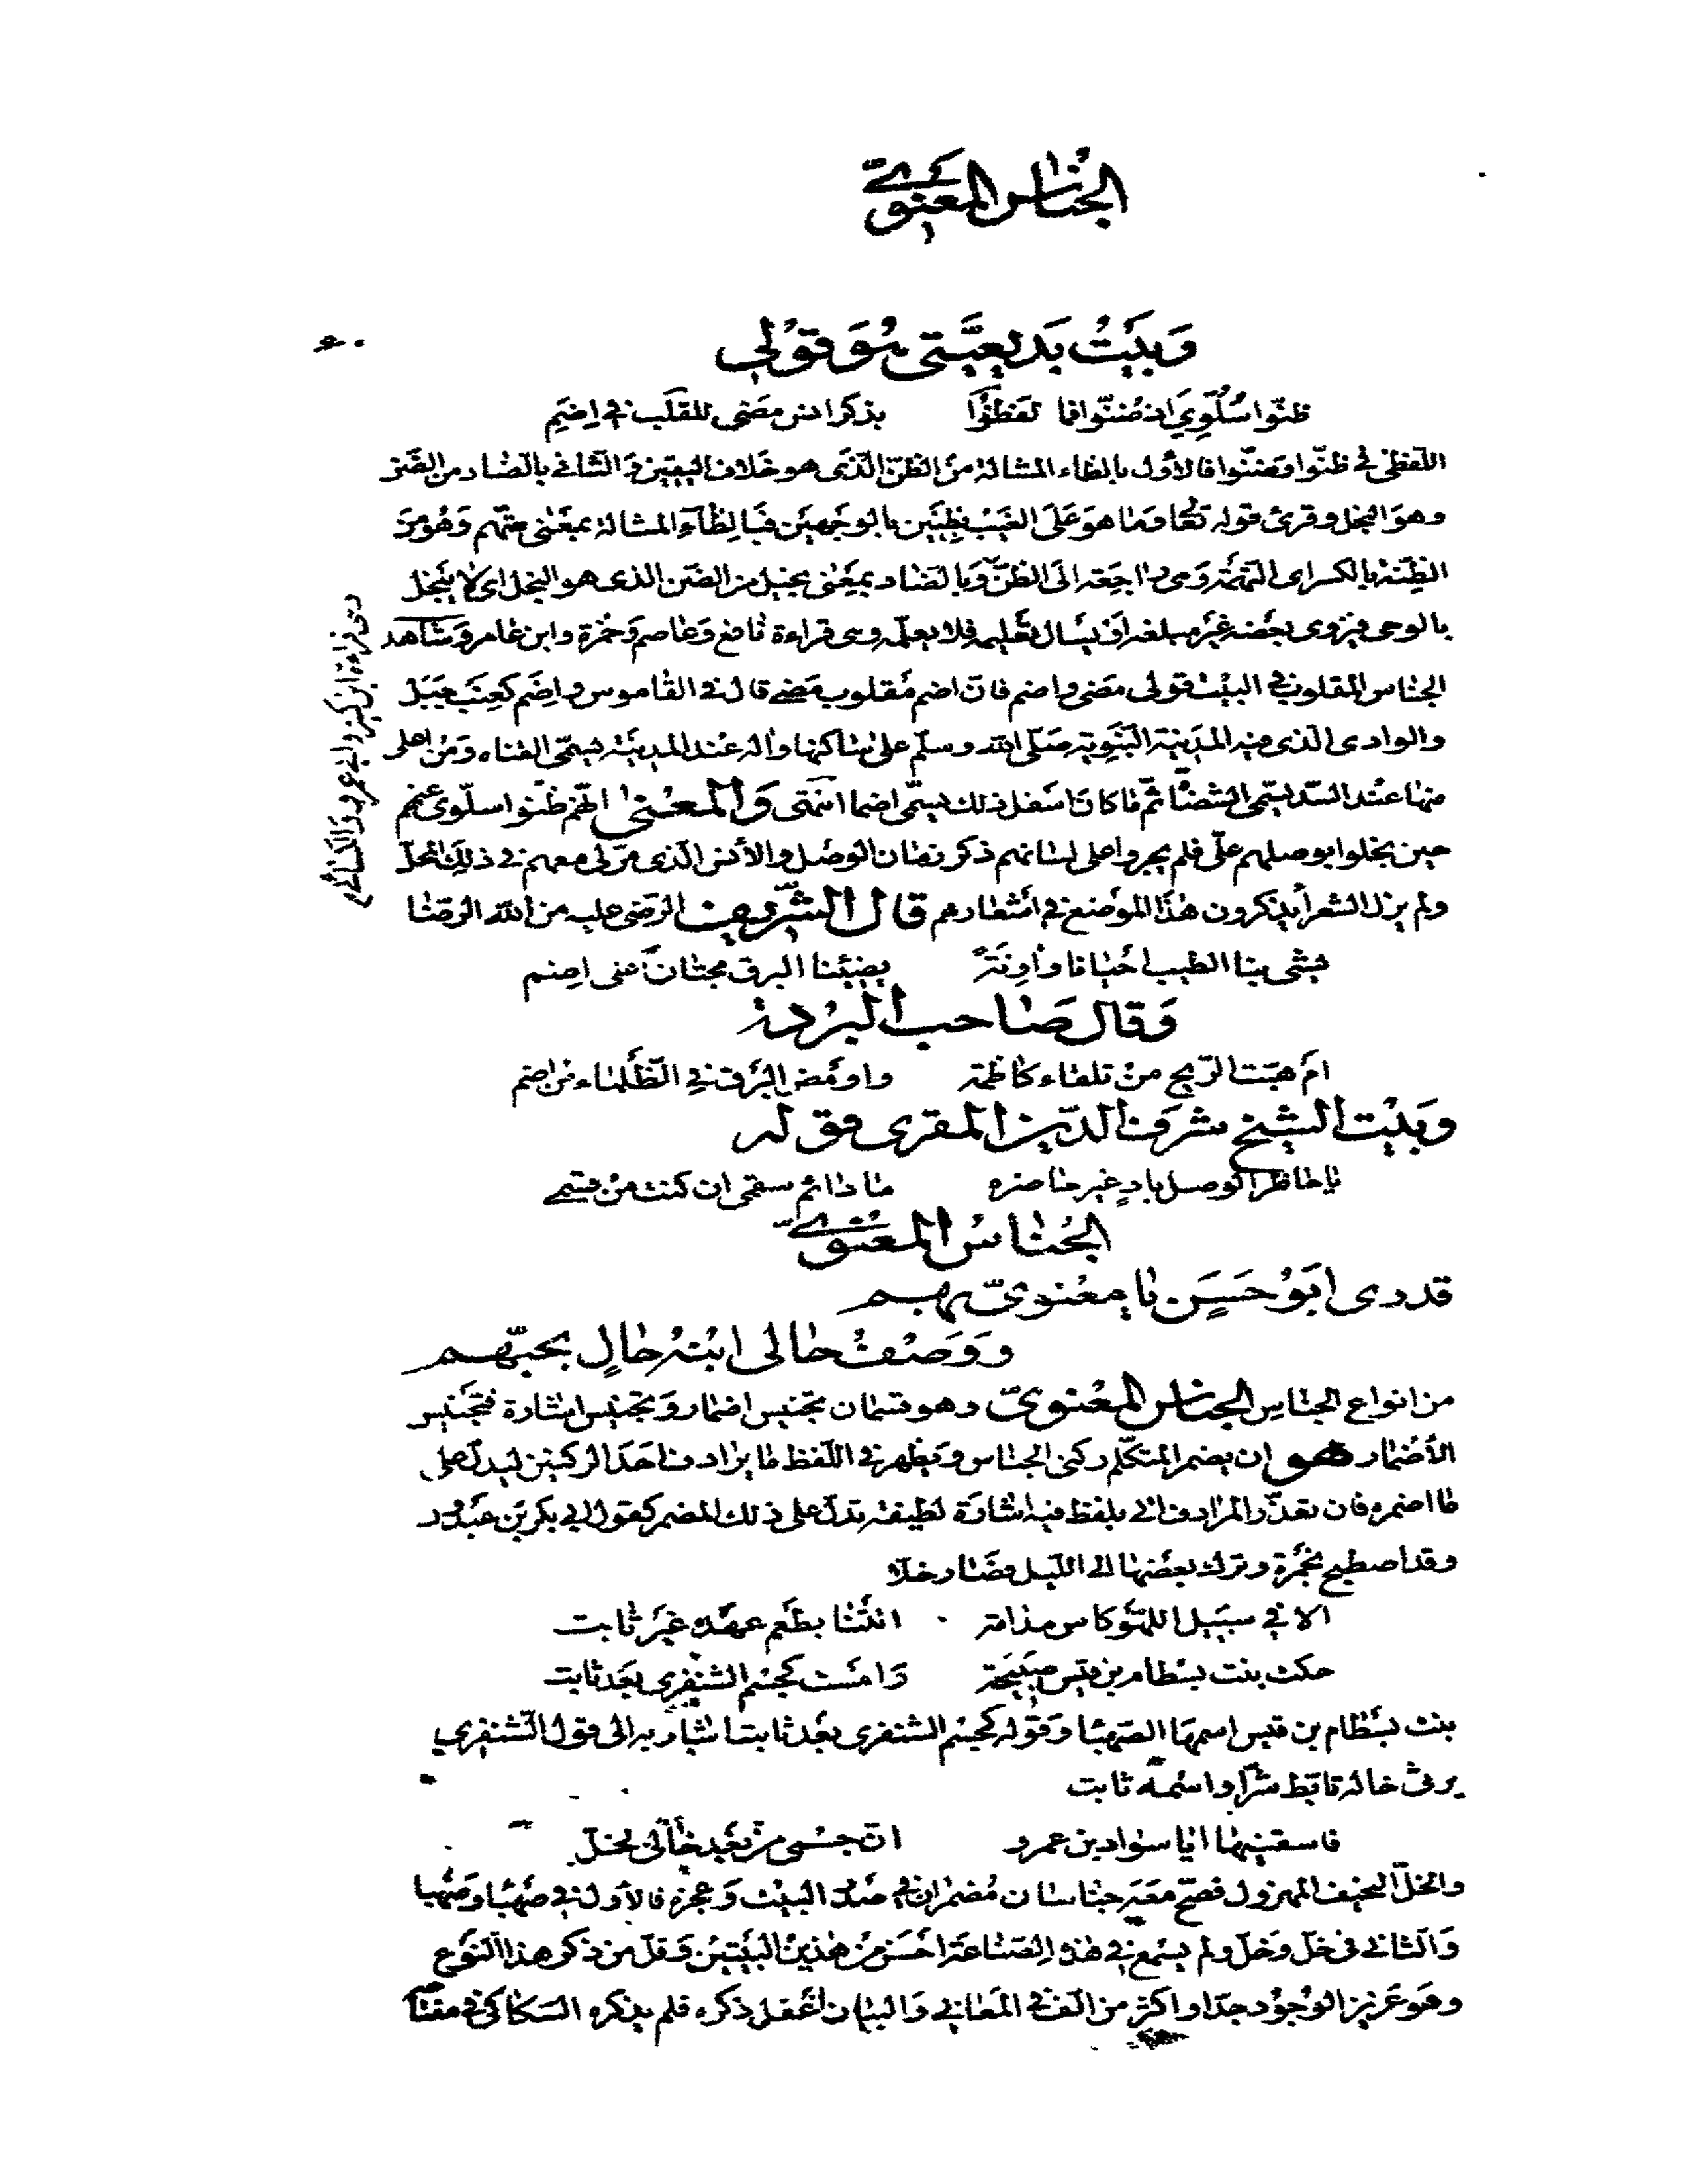 الجناس المعنوي
وَبَيتُ بَديعيَّتي هُوَ قَولي
ظنّوا سُلُوّي اذ ضننّوا فما لفظوا    بذكر انس مضى للقلب في اِضَمِ
اللفظيّ في ظنّوا وضنّنوا فالاول بالظاء المشالة من الظنّ الّذي هو خلاف اليقين وَالثاني بالضاد من الضَنّ
وهو البخل وقرئ قوله تعالى وَمَا هوَ عَلَى الغَيب بظنِينٍ بالوجهَين فبالظآء المشالة بمعنى متّهم وَهُوَ مِنَ
الظِنّة بالكسر اى التهَمَة وَهى راجعَة الَى الظنّ وَبالضاد بمعنى بخيل من الضنّ الذى هو البخل اى لا يبخل
بالوحى فيزوى بعضه غير مبلغه او يسال تعليمه فلا يعلّمه وهى قراءة نافع وَعاصم وَحمزة وابن عامر وَشاهد
وهى قراءة ابن كثير وابى عمرو وَالكسائي
الجناس المقلوب في البيت قولى مضى واضم فانّ اضم مقلوب مضى قال في القاموس واِضَم كَعِنَب جبَل
والوادى الذى فيه المدينة النبَويّة صَلّى الله وسلّم على ساكنها واله عند المدينة يسمّى القناه وَمن اعلى
منها عند السدّ يسمّى الشظاة ثمّ ما كان اسفل ذلك يسمّى اضما انتهى وَالمعنى انّهم ظنوا سلوّى عنهم
حين بخلوا بوصلهم علىّ فلم يجروا على لسانهم ذكر زمان الوصل والأنس الّذى مرّ لى معهم في ذلك المحلّ
ولم يزل الشعرآ يذكرون هذا الموضع في اشعارهم قال الشّريف الرضى عليه من الله الرضا
يشى بنا الطيب احيانا واونَةً    يضيئنا البرق مجتازا على اضم
وَقال صَاحب البردة
ام هبّت الرّيح من تلقاء كاظمة    واومَض البرق في الظلماء من اضم
وَبَيت الشيخ شرف الدّين المقرى قوله
الجناس المعنَويّ
قد ردى ابُو حَسَنٍ يا معنويّ بهم
وَوَصفُ حالى ابنهُ حالٍ بحبّهم
من انواع الجناسِ الجناس المعنوىّ وهو قسمان تجنيس اضمار وَتجنيس اشارة فتجنيس
الأضمار هو ان يضمر المتكلّم ركنى الجناس وَيظهر في اللّفظ ما يرادف احَدَ الركنين ليدلّ على
ما اضمره فان تعذّر المرادف اتى بلفظ فيه اشارة لطيفة تدلّ على ذلك المضمر كقول ابى بكر بن عبدُون
وقد اصطبح بخَمرة وترك بعضها الى الليل فصار خلاّ
الا في سبيل اللهو كاس مدامة    اتتنا بطعم عهده غير ثابت
حكت بنت بسطام بن قيس صبيحَة    وَامست كجسم الشنفرى بعد ثابت
بنت بسطام بن قيس اسمها الصهبا وَقوله كجسم الشنفرى بعد ثابت اشار به الى قول الشنفرى
يرثى خاله تابّط شرّا واسمه ثابت
فاسقنيها ايا سواد بن عمرو    انّ جسمى من بعد خالى لخلّ
والخلّ النحيف المهزول فصحّ معه جناسان مُضمران في صدر البيت وَعجزه فالأول في صهبا وَصهبا
وَالثانى فى خلّ وَخلّ ولم يسمع في هذه الصناعة احسن من هذين البيتين وَقلّ من ذكر هذا النوع
وهوَ عَزيز الوجُود جدّا واكثر من الّف في المعَانى وَالبيان اغفل ذكره فلم يذكره السكاكى في مفتا